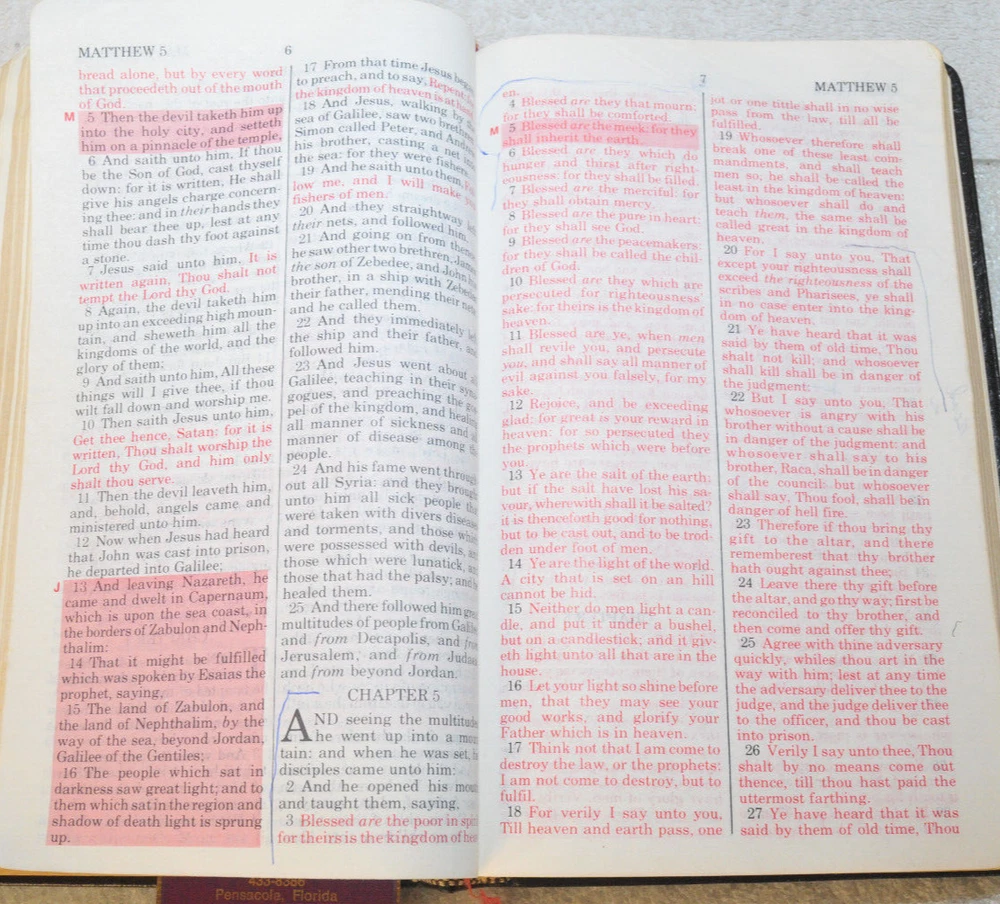 MATTHEW 5
6
bread alone, but by every word
that proceedeth out of the mouth
of God.
M
5 Then the devil taketh him up
into the holy city, and setteth
him on a pinnacle of the temple,
6 And saith unto him, If thou
be the Son of God, cast thyself
down: for it is written, He shall
give his angels charge concern-
ing thee: and in their hands they
shall bear thee up, lest at any
time thou dash thy foot against
a stone.
7 Jesus said unto him, It is
written again, Thou shalt not
tempt the Lord thy God.
8 Again, the devil taketh him
up into an exceeding high moun-
tain, and sheweth him all the
kingdoms of the world, and the
glory of them;
9 And saith unto him, All these
things will I give thee, if thou
wilt fall down and worship me.
10 Then saith Jesus unto him,
Get thee hence, Satan: for it is
written, Thou shalt worship the
Lord thy God, and him only
shalt thou serve.
11 Then the devil leaveth him,
and, behold, angels came and
ministered unto him.
12 Now when Jesus had heard
that John was cast into prison,
he departed into Galilee;
J
13 And leaving Nazareth, he
came and dwelt in Capernaum,
which is upon the sea coast, in
the borders of Zabulon and Neph-
thalim:
14 That it might be fulfilled
which was spoken by Esaias the
prophet, saying,
15 The land of Zabulon, and
the land of Nephthalim, by the
way of the sea, beyond Jordan,
Galilee of the Gentiles;
16 The people which sat in
darkness saw great light; and to
them which sat in the region and
shadow of death light is sprung
up.
17 From that time Jesus
to preach, and to say, Repent:
the kingdom of heaven is at
18 And Jesus, walking by
sea of Galilee, saw two
Simon called Peter, and
his brother, casting a net
the sea: for they were fishers.
19 And he saith unto them,
low me, and I will make you
fishers of men.
20 And they straightway
their nets, and followed him.
21 And going on from
he saw other two brethren,
the son of Zebedee, and John
brother, in a ship with
their father, mending their
and he called them.
22 And they immediately
the ship and their father, and
followed him.
23 And Jesus went about
Galilee, teaching in their
gogues, and preaching the
pel of the kingdom, and
all manner of sickness and
manner of disease among
people.
24 And his fame went
out all Syria: and they
unto him all sick people
were taken with divers
and torments, and those
were possessed with devils,
those which were lunatick,
those that had the palsy; and
healed them.
25 And there followed him
multitudes of people from
and from Decapolis, and
Jerusalem, and from
and from beyond Jordan.
CHAPTER 5
AND seeing the
he went up into a
tain: and when he was set,
disciples came unto him:
2 And he opened his
and taught them, saying,
3 Blessed are the poor in
for theirs is the kingdom of
7
MATTHEW 5
en.
4 Blessed are they that mourn:
for they shall be comforted.
M
5 Blessed are the meek: for they
shall inherit the earth.
6 Blessed are they which do
hunger and thirst after right-
eousness: for they shall be filled.
7 Blessed are the merciful: for
they shall obtain mercy.
8 Blessed are the pure in heart:
for they shall see God.
9 Blessed are the peacemakers:
for they shall be called the chil-
dren of God.
10 Blessed are they which are
persecuted for righteousness'
sake: for theirs is the kingdom of
heaven.
11 Blessed are ye, when men
shall revile you, and persecute
you, and shall say all manner of
evil against you falsely, for my
sake.
12 Rejoice, and be exceeding
glad: for great is your reward in
heaven: for so persecuted they
the prophets which were before
you.
13 Ye are the salt of the earth:
but if the salt have lost his sa-
vour, wherewith shall it be salted?
it is thenceforth good for nothing,
but to be cast out, and to be trod-
den under foot of men.
14 Ye are the light of the world.
A city that is set on an hill
cannot be hid.
15 Neither do men light a can-
dle, and put it under a bushel,
but on a candlestick; and it giv-
eth light unto all that are in the
house.
16 Let your light so shine before
men, that they may see your
good works, and glorify your
Father which is in heaven.
17 Think not that I am come to
destroy the law, or the prophets:
I am not come to destroy, but to
fulfil.
18 For verily I say unto you,
Till heaven and earth pass, one
jot or one tittle shall in no wise
pass from the law, till all be
fulfilled.
19 Whosoever therefore shall
break one of these least com-
mandments, and shall teach
men so, he shall be called the
least in the kingdom of heaven:
but whosoever shall do and
teach them, the same shall be
called great in the kingdom of
heaven.
20 For I say unto you, That
except your righteousness shall
exceed the righteousness of the
scribes and Pharisees, ye shall
in no case enter into the king-
dom of heaven.
21 Ye have heard that it was
said by them of old time, Thou
shalt not kill; and whosoever
shall kill shall be in danger of
the judgment:
22 But I say unto you, That
whosoever is angry with his
brother without a cause shall be
in danger of the judgment: and
whosoever shall say to his
brother, Raca, shall be in danger
of the council: but whosoever
shall say, Thou fool, shall be in
danger of hell fire.
23 Therefore if thou bring thy
gift to the altar, and there
rememberest that thy brother
hath ought against thee;
24 Leave there thy gift before
the altar, and go thy way; first be
reconciled to thy brother, and
then come and offer thy gift.
25 Agree with thine adversary
quickly, whiles thou art in the
way with him; lest at any time
the adversary deliver thee to the
judge, and the judge deliver thee
to the officer, and thou be cast
into prison.
26 Verily I say unto thee, Thou
shalt by no means come out
thence, till thou hast paid the
uttermost farthing.
27 Ye have heard that it was
said by them of old time, Thou
433-8386
Pensacola, Florida